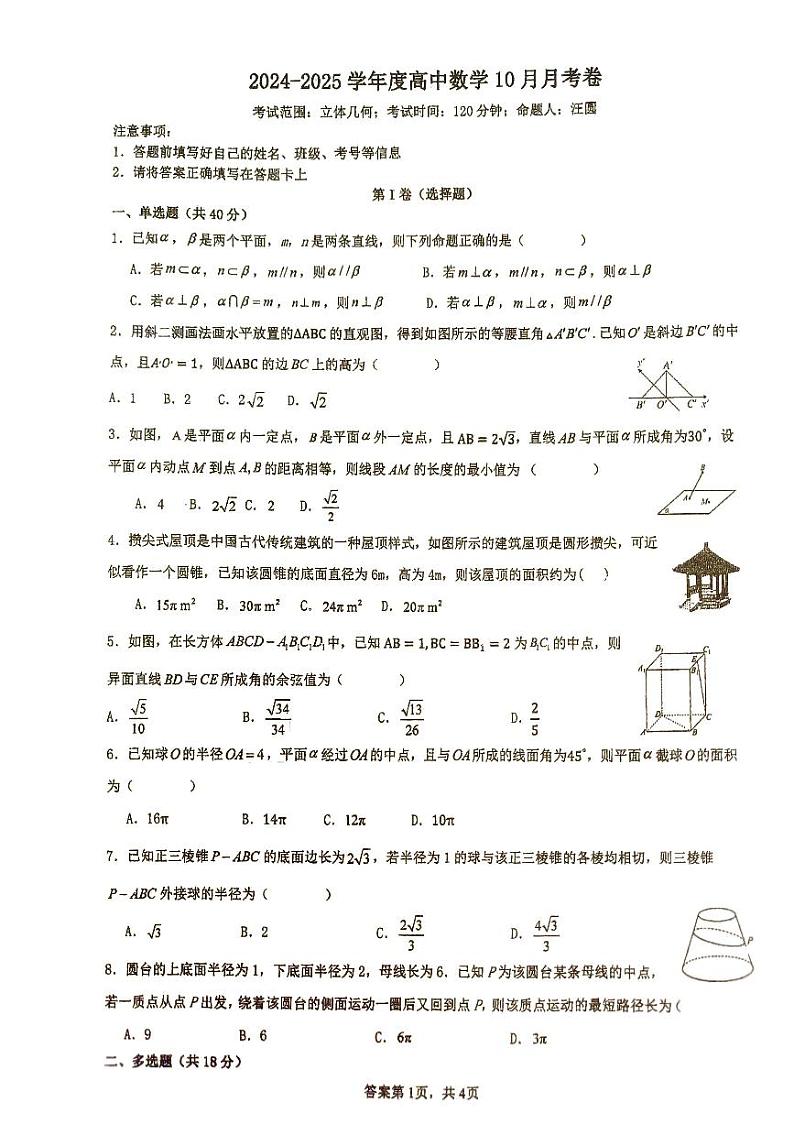 2024-2025 学年度高中数学 10 月月考卷
考试范围：立体几何；考试时间：120 分钟；命题人：汪圆
注意事项：
1．答题前填写好自己的姓名、班级、考号等信息
2．请将答案正确填写在答题卡上
第 I 卷（选择题）
一、单选题（共 40 分）
1．已知α，β是两个平面，m，n是两条直线，则下列命题正确的是（　　）
A．若m⊂α，n⊂β，m//n，则α//β　　B．若m⊥α，m//n，n⊂β，则α⊥β
C．若α⊥β，α∩β=m，n⊥m，则n⊥β　　D．若α⊥β，m⊥α，则m//β
2．用斜二测画法画水平放置的△ABC 的直观图，得到如图所示的等腰直角△A′B′C′．已知O′是斜边B′C′的中
点，且A′O′ = 1，则△ABC 的边BC上的高为（　　）
A．1　B．2　C．2√2　D．√2
y′ A′ B′ O′ C′ x′
3．如图，A 是平面α内一定点，B是平面α外一定点，且 AB = 2√3，直线AB与平面α所成角为30°，设
平面α内动点M到点A,B的距离相等，则线段AM的长度的最小值为（　　）
A．4　B．2√2　C．2　D．√2/2
B A M α
4．攒尖式屋顶是中国古代传统建筑的一种屋顶样式，如图所示的建筑屋顶是圆形攒尖，可近
似看作一个圆锥，已知该圆锥的底面直径为 6m，高为 4m，则该屋顶的面积约为（　）
A．15π m²　B．30π m²　C．24π m²　D．20π m²
5．如图，在长方体ABCD－A₁B₁C₁D₁中，已知 AB = 1, BC = BB₁ = 2 为B₁C₁的中点，则
异面直线BD与CE所成角的余弦值为（　　）
A．√5/10　B．√34/34　C．√13/26　D．2/5
D₁ C₁ E A₁ B₁ D C A B
6．已知球O的半径OA=4，平面α经过OA的中点，且与OA所成的线面角为45°，则平面α截球O的面积
为（　　）
A．16π　B．14π　C．12π　D．10π
7．已知正三棱锥P－ABC的底面边长为2√3，若半径为 1 的球与该正三棱锥的各棱均相切，则三棱锥
P－ABC外接球的半径为（　　）
A．√3　B．2　C．2√3/3　D．4√3/3
8．圆台的上底面半径为 1，下底面半径为 2，母线长为 6．已知P为该圆台某条母线的中点，
若一质点从点P出发，绕着该圆台的侧面运动一圈后又回到点P，则该质点运动的最短路径长为（
P
A．9　B．6　C．6π　D．3π
二、多选题（共 18 分）
答案第 1页，共 4页